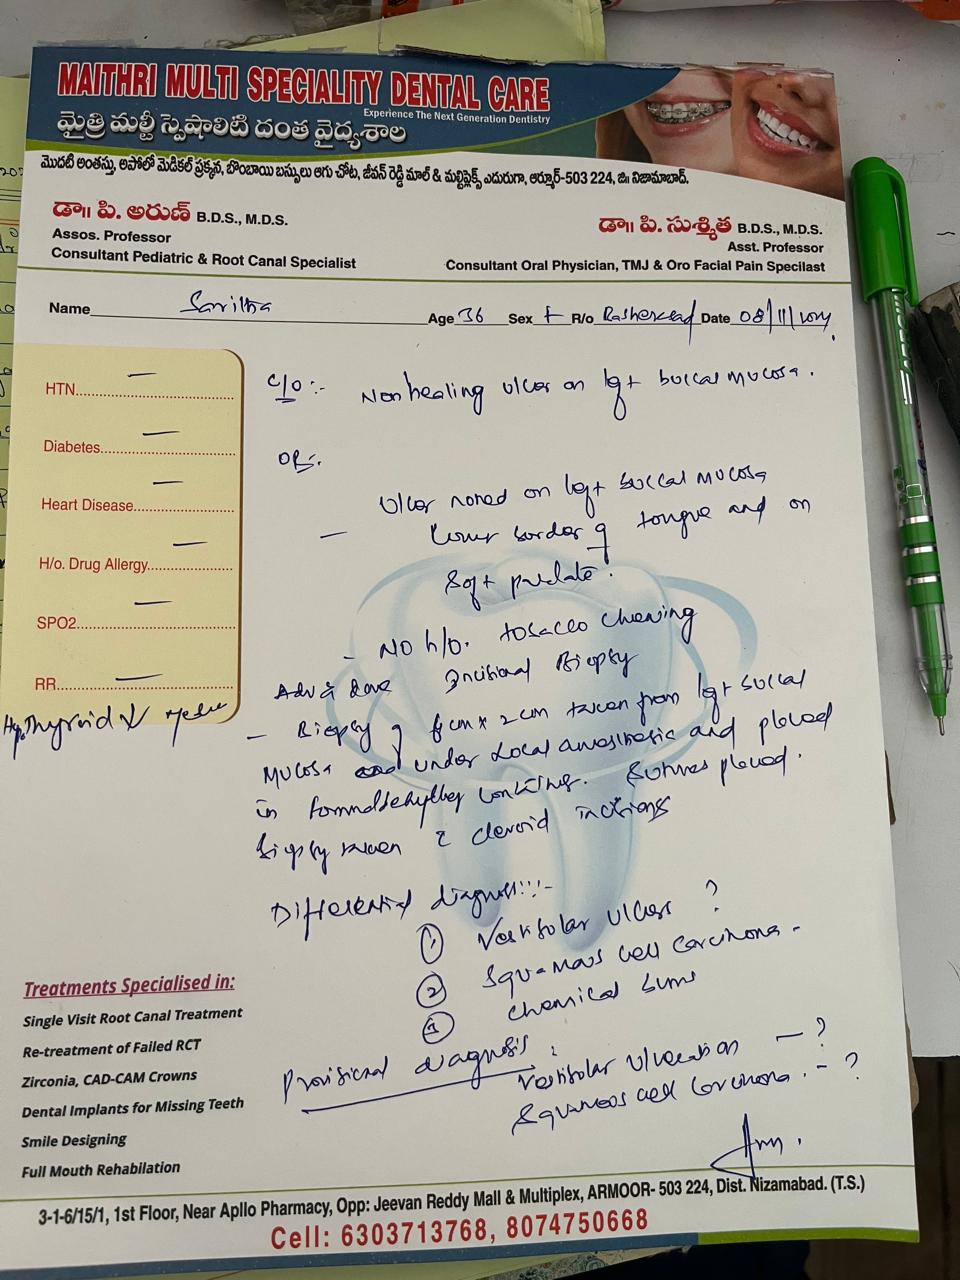 MAITHRI MULTI SPECIALITY DENTAL CARE
Experience The Next Generation Dentistry
మైత్రి మల్టీ స్పెషాలిటి దంత వైద్యశాల
మొదటి అంతస్తు, అపోలో మెడికల్ ప్రక్కన, బొంబాయి బస్సులు ఆగు చోట, జీవన్ రెడ్డి మాల్ & మల్టిప్లెక్స్ ఎదురుగా, ఆర్మూర్-503 224, జి॥ నిజామాబాద్.
డా॥ పి. అరుణ్ B.D.S., M.D.S.
Assos. Professor
Consultant Pediatric & Root Canal Specialist
డా॥ పి. సుశ్మిత B.D.S., M.D.S.
Asst. Professor
Consultant Oral Physician, TMJ & Oro Facial Pain Specilast
Name Saritha Age 36 Sex F R/o Date 08/11/2024.
HTN —
Diabetes —
Heart Disease —
H/o. Drug Allergy —
SPO2 —
RR —
Thyroid
C/O :- Non healing ulcer on left buccal mucosa.
O/E:.
Ulcer noted on left buccal mucosa
— border of tongue and on
Soft palate.
- No h/o. tobacco chewing
Adv & done Incisional Biopsy
- Biopsy of cm x 2cm taken from left buccal
mucosa under Local anesthesia and placed
in container. Sutures placed.
Biopsy taken incisions
Differential diagnosis:-
① Vestibular ulcers ?
② Squamous cell carcinoma -
③ Chemical burns
Provisional diagnosis :
Vestibular ulceration — ?
Squamous cell carcinoma. - ?
Treatments Specialised in:
Single Visit Root Canal Treatment
Re-treatment of Failed RCT
Zirconia, CAD-CAM Crowns
Dental Implants for Missing Teeth
Smile Designing
Full Mouth Rehabilation
3-1-6/15/1, 1st Floor, Near Apllo Pharmacy, Opp: Jeevan Reddy Mall & Multiplex, ARMOOR- 503 224, Dist. Nizamabad. (T.S.)
Cell: 6303713768, 8074750668